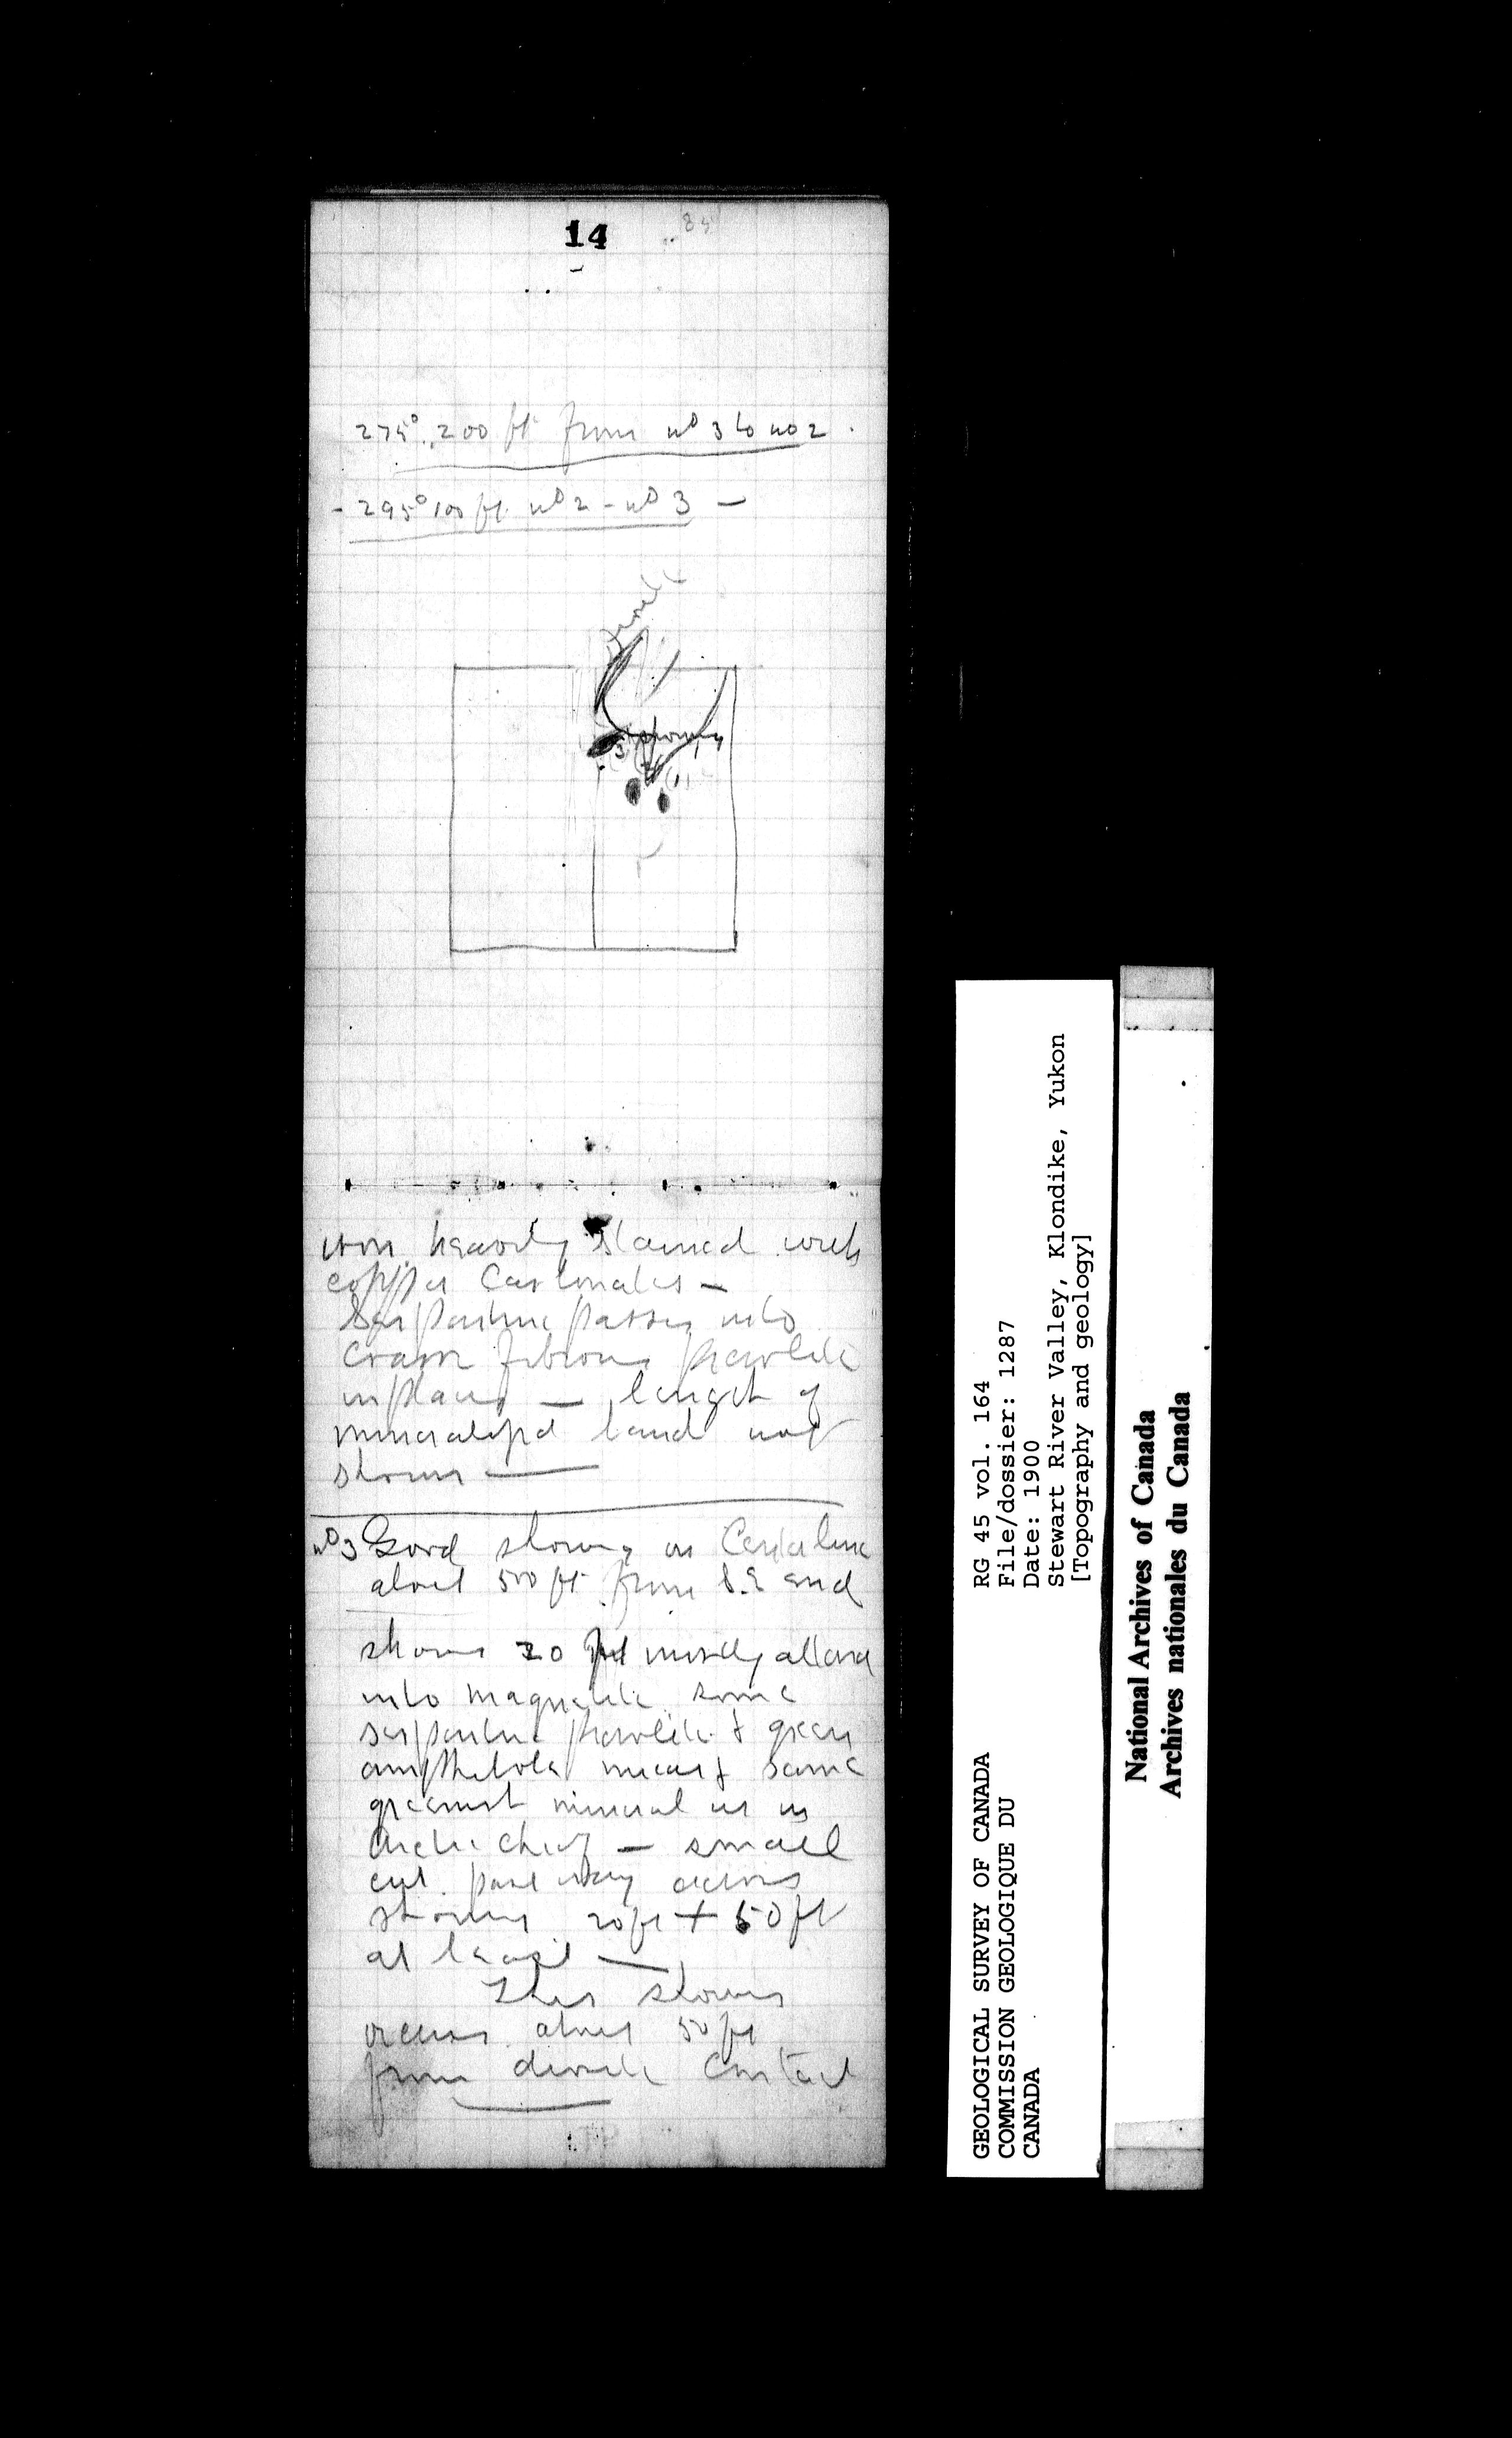 14
85
275° 200 ft from No 3 to No 2
- 295° 100 ft. No 2 - No 3 -
showing
iron heavily stained with
copper Carbonates -
Serpentine passes into
Coarse fibrous
in places - length of
mineralized band not
shown -
No 3 Good showing on Center line
about 500 ft from S.E end
shows 20 feet mostly altered
into magnetite some
serpentine & green
amphibole micas & same
greenish mineral as in
chief - small
cut part way across
showing 20 ft + 50 ft
at least -
This showing
occurs about 50 ft
from diorite Contact
GEOLOGICAL SURVEY OF CANADA
COMMISSION GEOLOGIQUE DU
CANADA
RG 45 vol. 164
File/dossier: 1287
Date: 1900
Stewart River Valley, Klondike, Yukon
[Topography and geology]
National Archives of Canada
Archives nationales du Canada